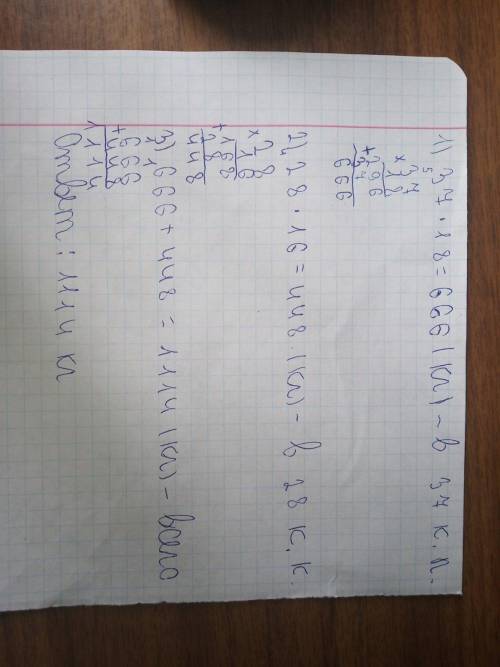 1) 37 · 18 = 666 (кг) - в 37 к. п.
5
× 37
18
+ 296
37
666
2) 28 · 16 = 448 (кг) - в 28 к. к.
× 28
16
+ 168
28
448
3) 666 + 448 = 1114 (кг) - всего
1
+ 666
448
1114
Ответ: 1114 кг